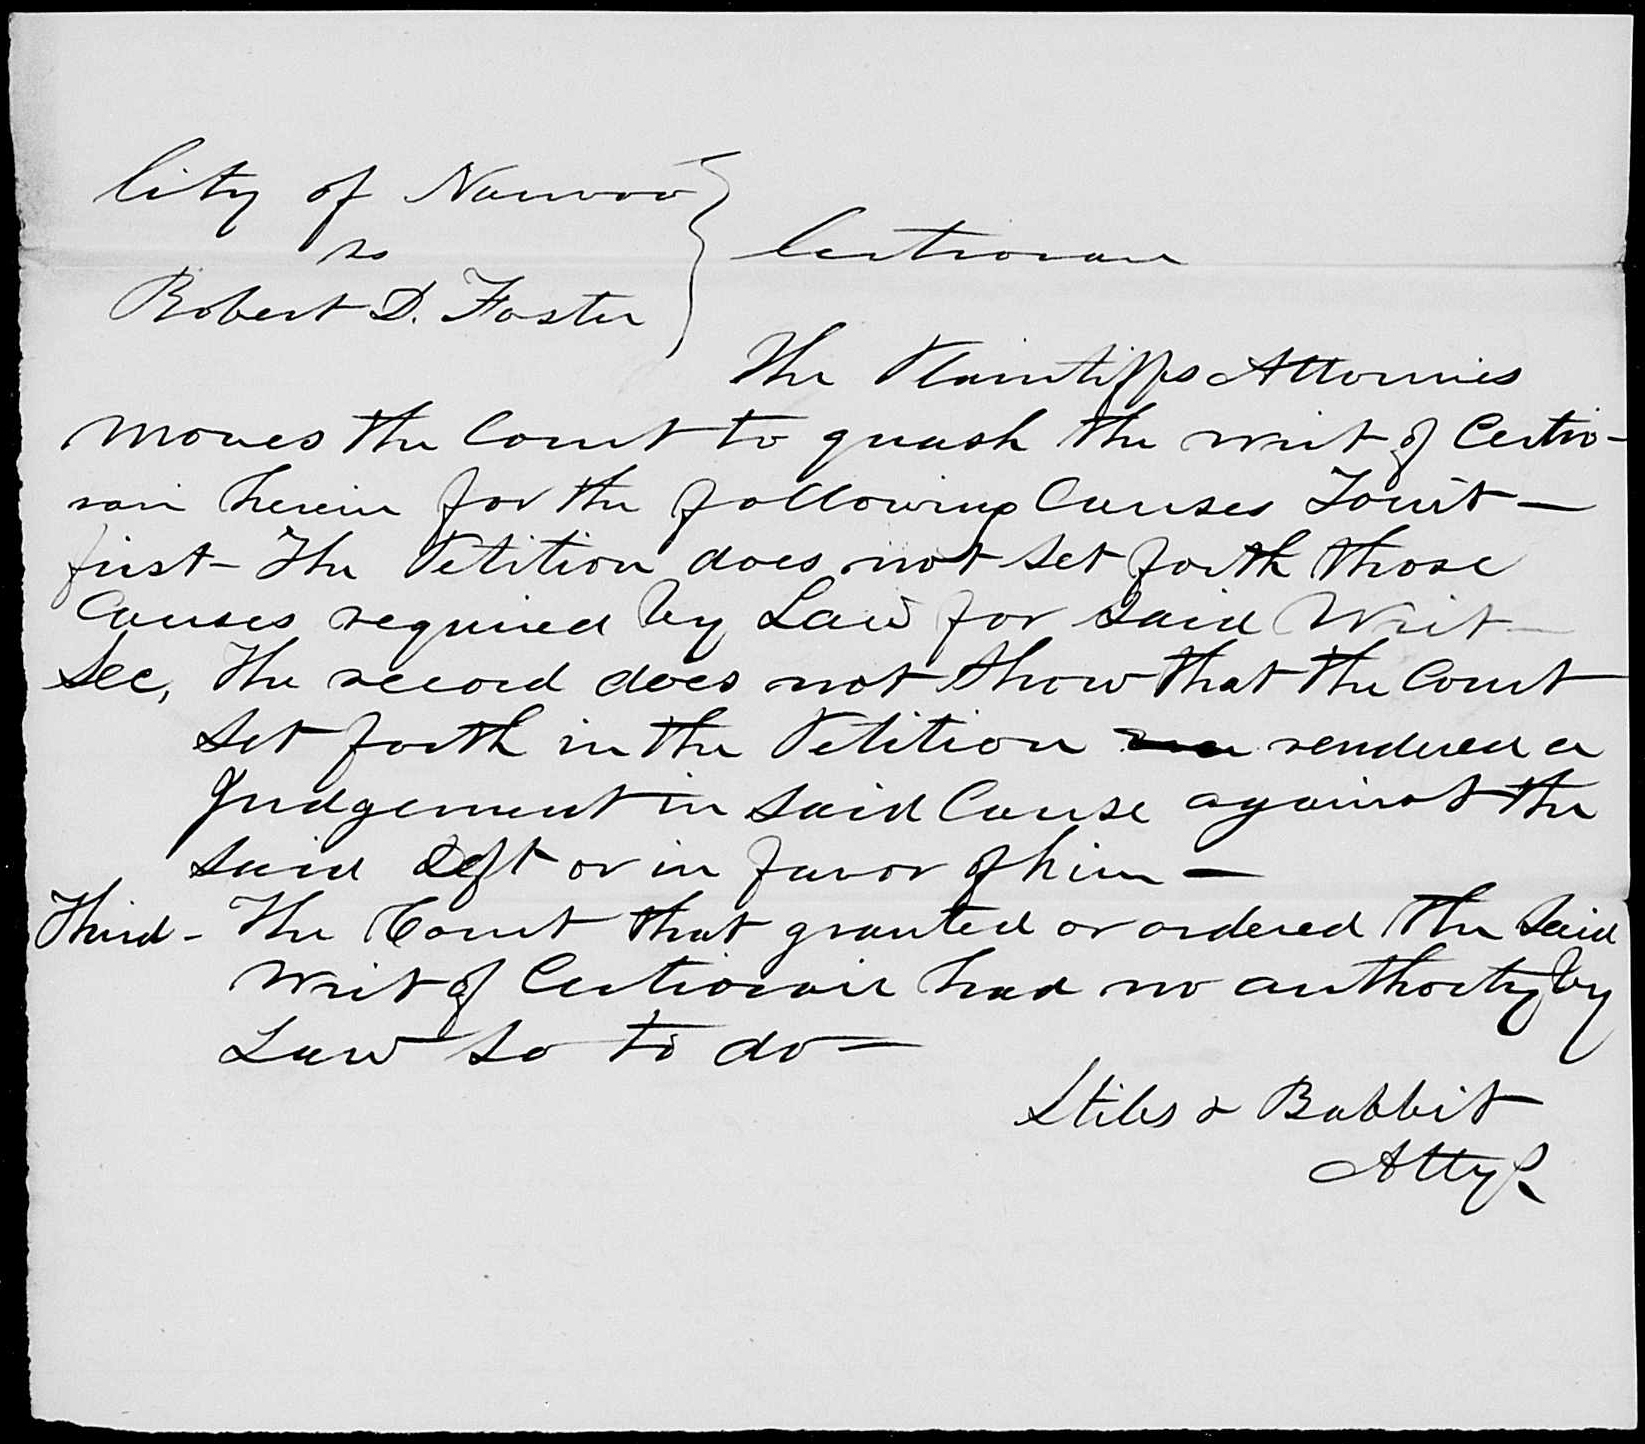 City of Nauvoo
vs
Robert D. Foster
Certiorari
The Plaintiffs Attornies
moves the Court to quash the writ of Certio-
rari herein for the following Causes Towit —
first — The Petition does not set forth those
Causes required by Law for said Writ —
Sec, The record does not show that the Court
set forth in the Petition rendered a
Judgement in said Cause against the
said Deft or in favor of him —
Third - The Court that granted or ordered the said
Writ of Certiorari had no authority by
Law so to do —
Stiles & Babbit
Attys